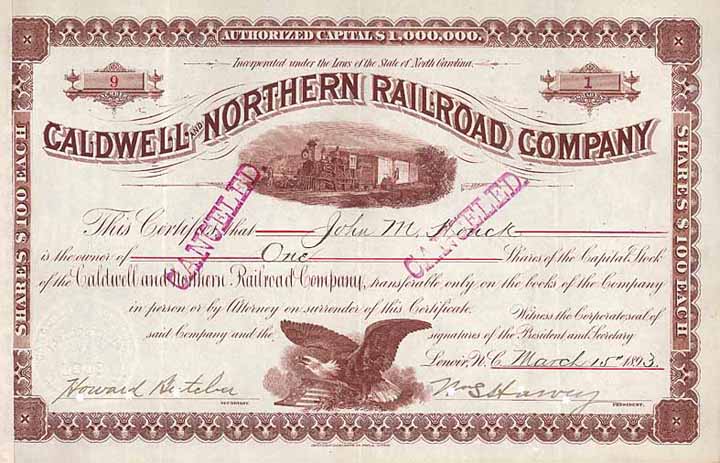 AUTHORIZED CAPITAL $1,000,000.
Incorporated under the Laws of the State of North Carolina.
9
1
CALDWELL AND NORTHERN RAILROAD COMPANY
SHARES $100 EACH
SHARES $100 EACH
CANCELED
CANCELED
This Certifies that John M. Houck
is the owner of One Shares of the Capital Stock
of the Caldwell and Northern Railroad Company, transferable only on the books of the Company
in person or by Attorney on surrender of this Certificate. Witness the Corporate seal of
said Company and the signatures of the President and Secretary
Lenoir, N.C. March 15th 1893.
Howard
SECRETARY.
Wm S Harvey
PRESIDENT.